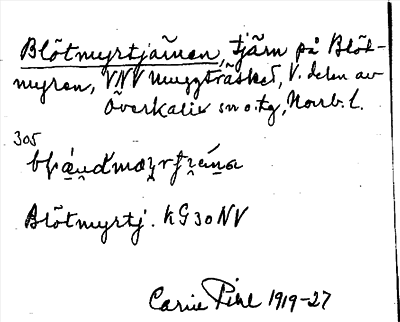 Blötmyrtjärnen, tjärn på Blöt-
myren, VNV Muggträsket, V. delen av
Överkalix sn o. tg, Norrb. l.
305
Blötmyrtj. KG30NV
Carin Pihl 1919-27